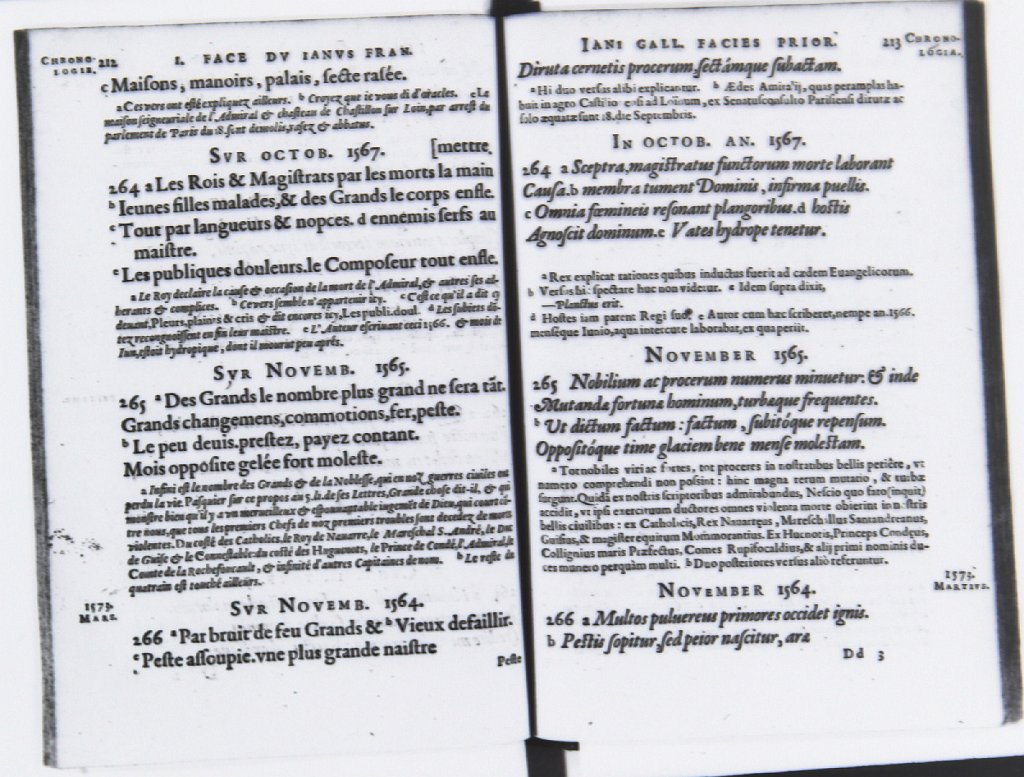 CHRONO-
LOGIA.
212
I. FACE DV IANVS FRAN.
c Maiſons, manoirs, palais, ſecte raſée.
a Ces vers ont eſté expliquez ailleurs. b Croyez que ie vous di d'oracles. c La
maiſon ſeigneuriale de l'Admiral & chaſteau de Chaſtillon ſur Loin, par arreſt du
parlement de Paris du 18. ſont demolis, raſez & abbatus.
SVR OCTOB. 1567. [mettre,
264 a Les Rois & Magiſtrats par les morts la main
b Ieunes filles malades, & des Grands le corps enfle.
c Tout par langueurs & nopces. d ennemis ſerfs au
maiſtre.
e Les publiques douleurs. le Compoſeur tout enfle.
a Le Roy declaire la cauſe & occaſion de la mort de l'Admiral, & autres ſes ad-
herants & complices. b Ce vers ſemble n'appartenir icy. c C'eſt ce qu'il a dit cy
deuant, Pleurs, plaints & cris & dit encores icy, Les publi. doul. d Les ſubiets di-
tez recongnoiſſent en fin leur maiſtre. e L'Auteur eſcriuant ceci 1566. & mois de
Iun, eſtoit hydropique, dont il mourut peu aprés.
SVR NOVEMB. 1565.
265 a Des Grands le nombre plus grand ne ſera tāt.
Grands changemens, commotions, fer, peſte.
b Le peu deuis. preſtez, payez contant.
Mois oppoſite gelée fort moleſte.
a Infini eſt le nombre des Grands & de la Nobleſſe, qui en noz guerres ciuiles ont
perdu la vie. Paſquier ſur ce propos au 5. li. de ſes Lettres, Grande choſe dit-il, & qui
monſtre bien qu'il y a vn merueilleux & eſpouuantable iugemēt de Dieu, qui court cō-
tre nous, que tous les premiers Chefs de noz premiers troubles ſont decedez de morts
violentes. Du coſté des Catholics, le Roy de Nauarre, le Mareſchal S. André, le Duc
de Guiſe & le Conneſtable: du coſté des Huguenots, le Prince de Condé, l'Admiral, le
Comte de la Rochefoucault, & infinité d'autres Capitaines de nom. b Le reſte du
quatrain eſt touché ailleurs.
1573.
MARS.
SVR NOVEMB. 1564.
266 a Par bruit de feu Grands & b Vieux defaillir.
c Peſte aſſoupie. vne plus grande naiſtre
Peſte
IANI GALL. FACIES PRIOR.
213
CHRONO-
LOGIA.
Diruta cernetis procerum, ſectámque ſubactam.
a Hi duo verſus alibi explicantur. b Ædes Amiralij, quas peramplas ha-
buit in agro Caſtilio ad Loinum, ex Senatuſconſulto Pariſienſi dirutæ ac
ſolo æquatæ ſunt 18. die Septembris.
IN OCTOB. AN. 1567.
264 a Sceptra, magiſtratus functorum morte laborant
Cauſa. b membra tument Dominis, infirma puellis.
c Omnia fœmineis reſonant plangoribus. d hoſtis
Agnoſcit dominum. e Vates hydrope tenetur.
a Rex explicat rationes quibus inductus fuerit ad cædem Euangelicorum.
b Verſus hic ſpectare huc non videtur. c Idem ſupra dixit,
—Planctus erit.
d Hoſtes iam parent Regi ſuo. e Autor cum hæc ſcriberet, nempe an. 1566.
menſeque Iunio, aqua intercute laborabat, ex qua periit.
NOVEMBER 1565.
265 Nobilium ac procerum numerus minuetur. & inde
Mutandæ fortunæ hominum, turbæque frequentes.
b Vt dictum factum: factum, ſubitóque repenſum.
Oppoſitóque time glaciem bene menſe moleſtam.
a Tot nobiles viri ac fortes, tot proceres in noſtratibus bellis periêre, vt
numero comprehendi non poſſint: hinc magna rerum mutatio, & turbæ
ſurgunt. Quidā ex noſtris ſcriptoribus admirabundus, Neſcio quo fato (inquit)
accidit, vt ipſi exercituum ductores omnes violenta morte obierint in noſtris
bellis ciuilibus: ex Catholicis, Rex Nauarræus, Mareſchallus Santandreanus,
Guiſius, & magiſter equitum Mommorantius. Ex Hucnotis, Princeps Condęus,
Collignius maris Præfectus, Comes Rupifocaldius, & alij primi nominis du-
ces munero perquàm multi. b Duo poſteriores verſus aliò referuntur.
NOVEMBER 1564.
1573.
MARTIVS.
266 a Multos puluereus primores occidet ignis.
b Peſtis ſopitur, ſed peior naſcitur, ara
Dd 3